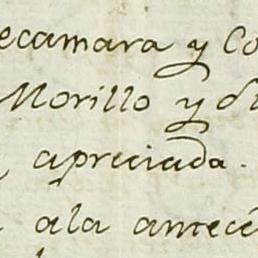 ecamara y Co
Morillo y d
apreciada.
ala antece